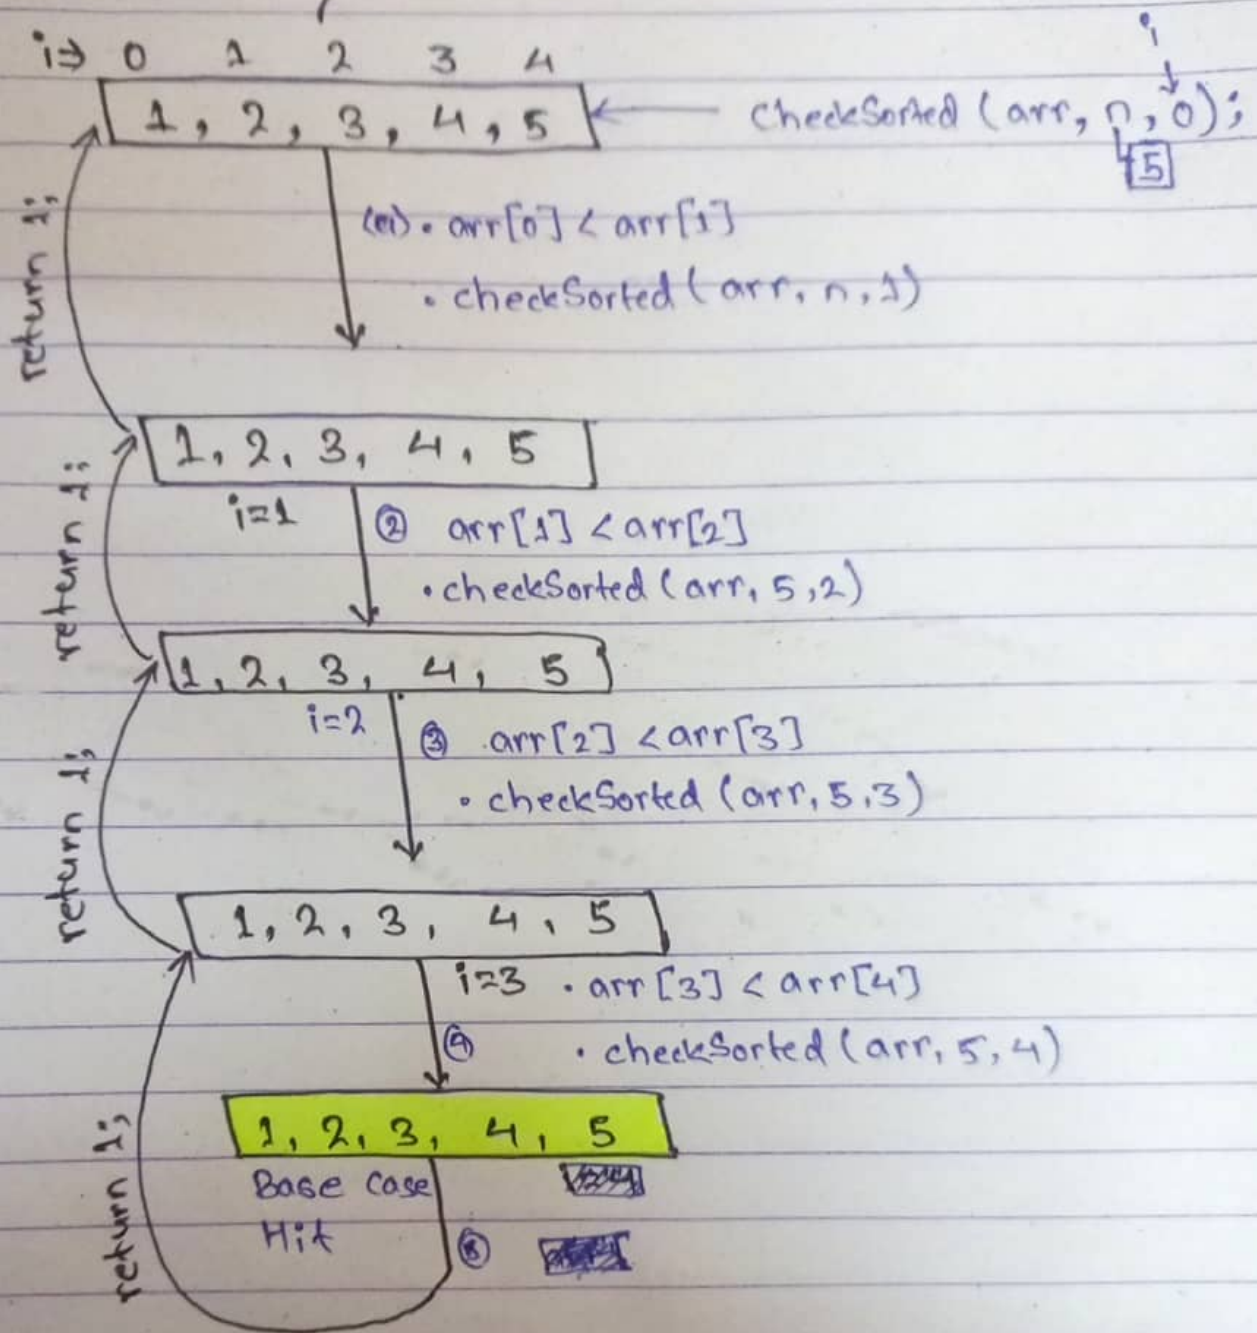 i⇒ 0 1 2 3 4
i
1, 2, 3, 4, 5
checkSorted (arr, n, 0);
5
• arr[0] < arr[1]
• checkSorted (arr, n, 1)
return 1;
1, 2, 3, 4, 5
i=1
② arr[1] < arr[2]
• checkSorted (arr, 5, 2)
return 1;
1, 2, 3, 4, 5
i=2
③ arr[2] < arr[3]
• checkSorted (arr, 5, 3)
return 1;
1, 2, 3, 4, 5
i=3 • arr[3] < arr[4]
④ • checkSorted (arr, 5, 4)
return 1;
1, 2, 3, 4, 5
Base Case
Hit